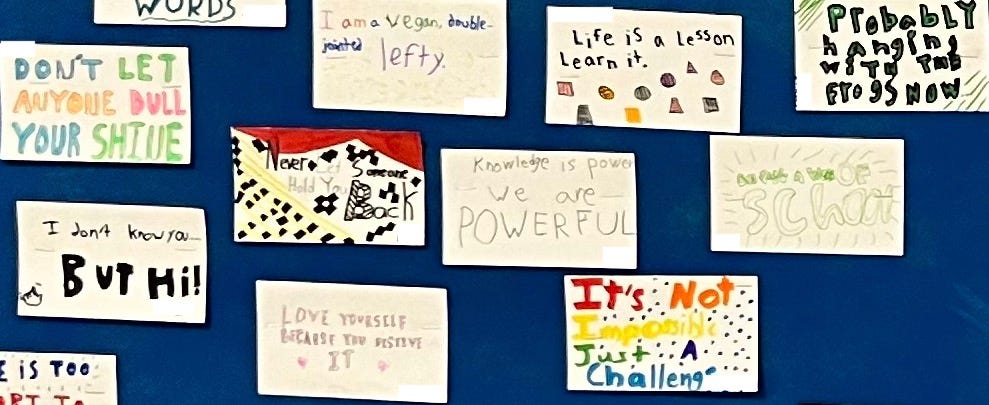 WORDS
I am a vegan, double-
jointed lefty.
Life is a Lesson
Learn it.
Probably
hanging
WITH THE
FROGS NOW
DON'T LET
ANYONE DULL
YOUR SHINE
Never Let Someone
Hold You Back
Knowledge is power
We are
POWERFUL
OF
SCHOOL
I don't know you...
BUT Hi!
LOVE YOURSELF
BECAUSE YOU DESERVE
IT
It's Not
Impossible
Just A
Challenge
E IS TOO